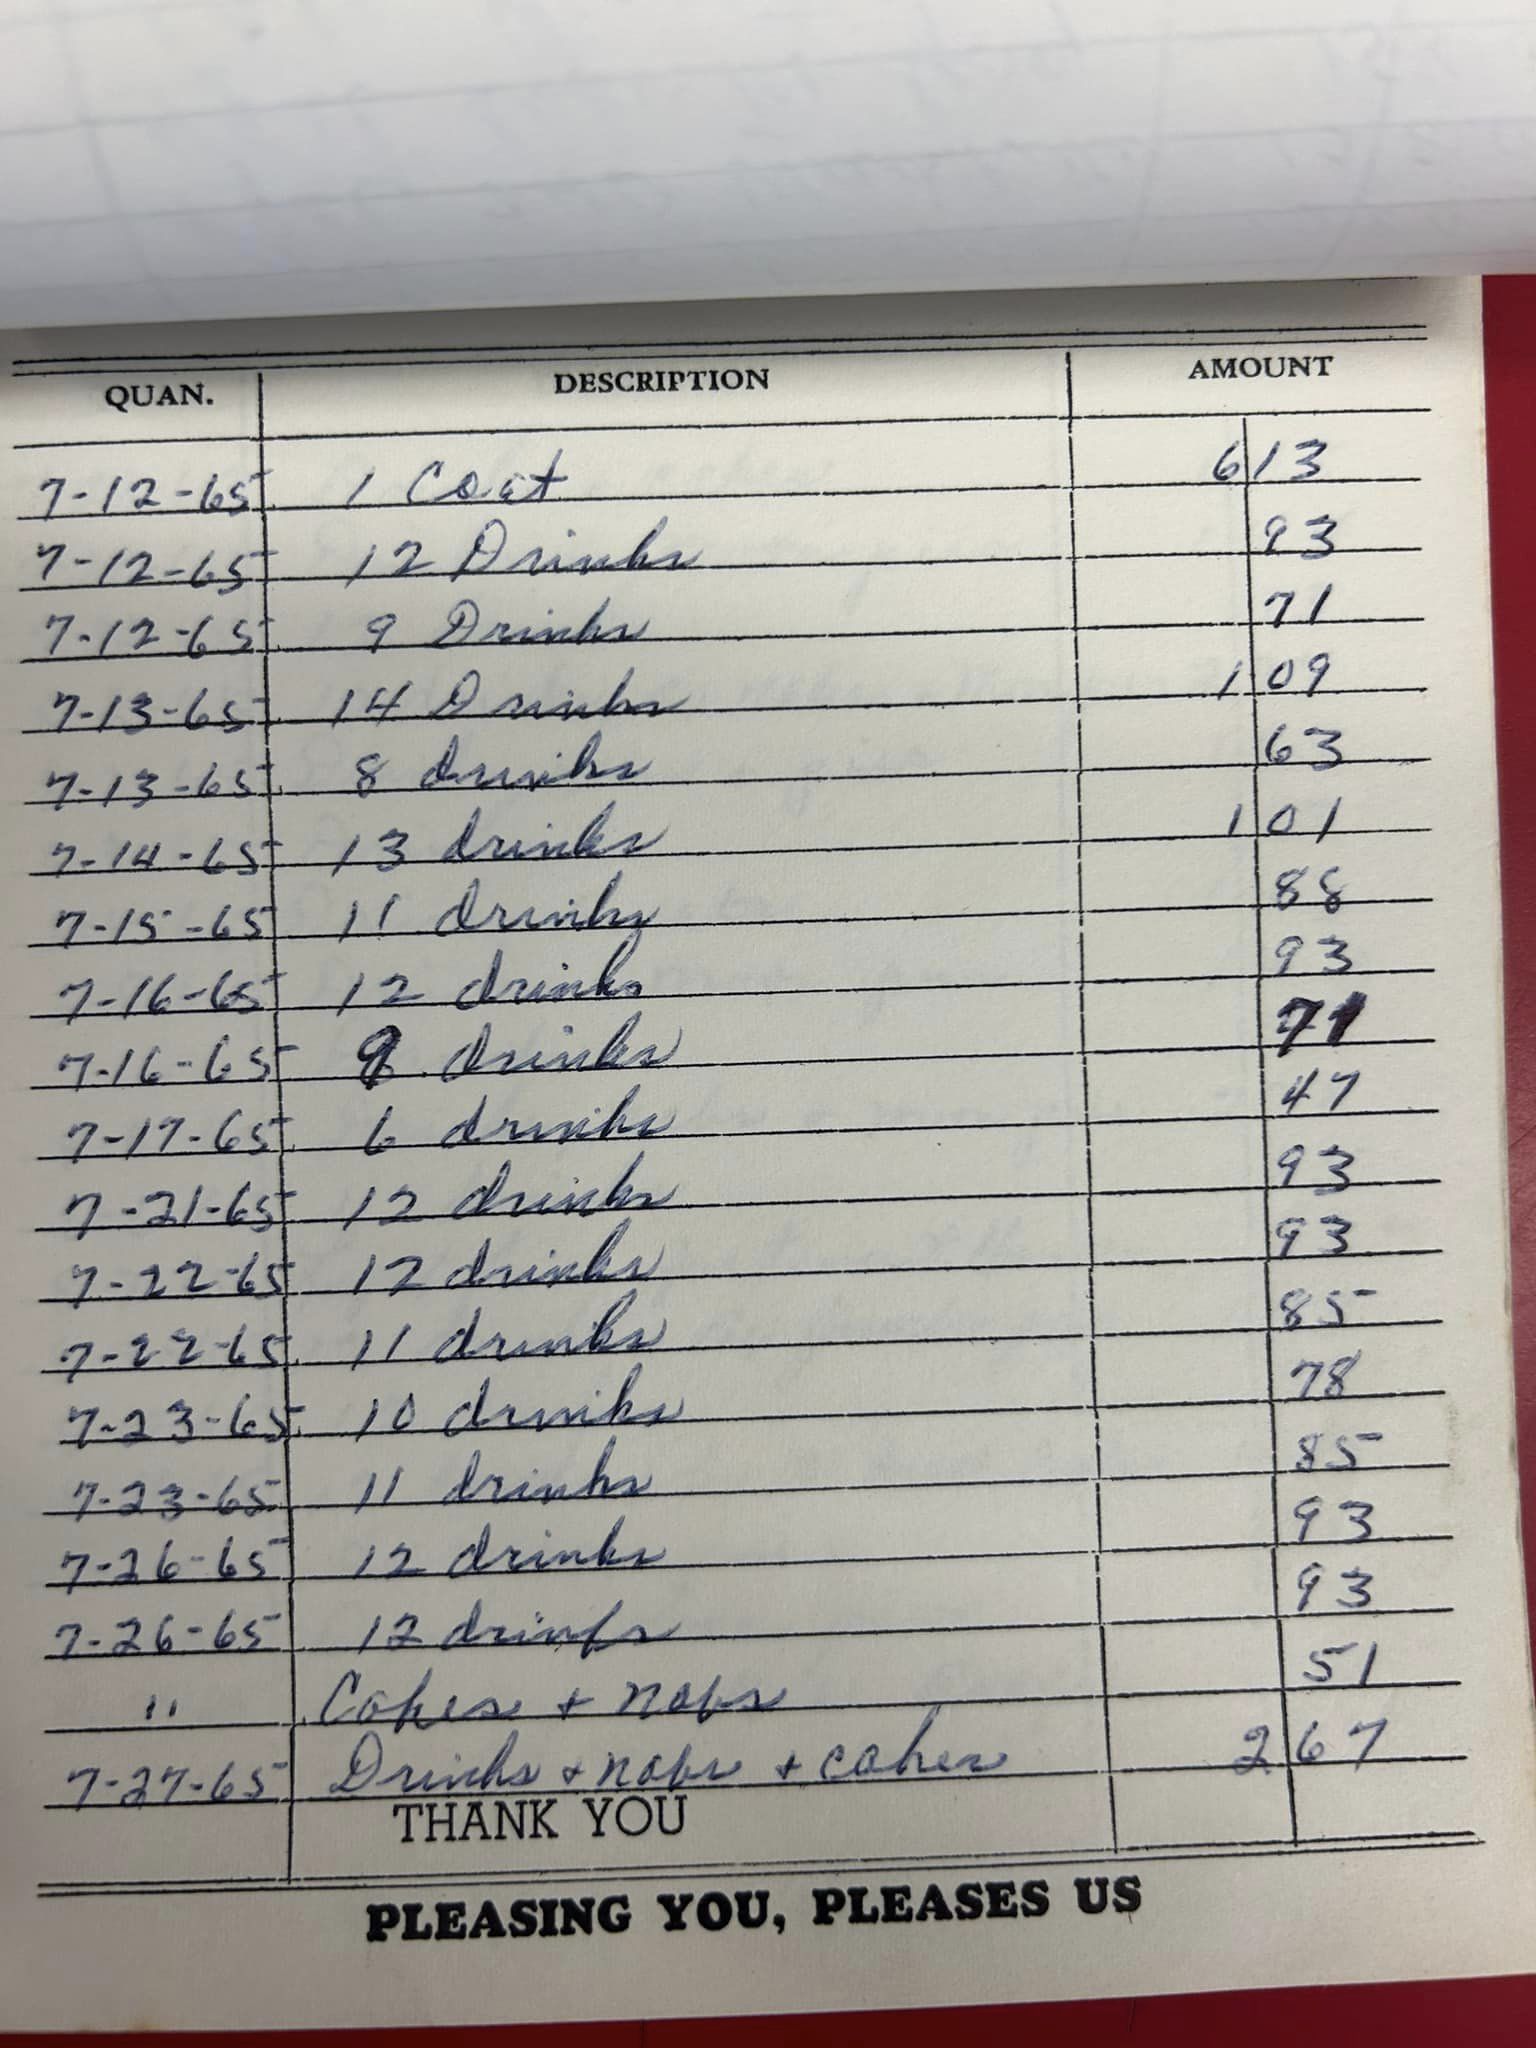 QUAN. DESCRIPTION AMOUNT
7-12-65 1 Coat 6 13
7-12-65 12 Drinks 93
7-12-65 9 Drinks 71
7-13-65 14 Drinks 1 09
7-13-65 8 drinks 63
7-14-65 13 drinks 1 01
7-15-65 11 drinks 88
7-16-65 12 drinks 93
7-16-65 9 drinks 71
7-17-65 6 drinks 47
7-21-65 12 drinks 93
7-22-65 12 drinks 93
7-22-65 11 drinks 85
7-23-65 10 drinks 78
7-23-65 11 drinks 85
7-26-65 12 drinks 93
7-26-65 12 drinks 93
" Cakes + nabs 51
7-27-65 Drinks + nabs + cakes 2 67
THANK YOU
PLEASING YOU, PLEASES US